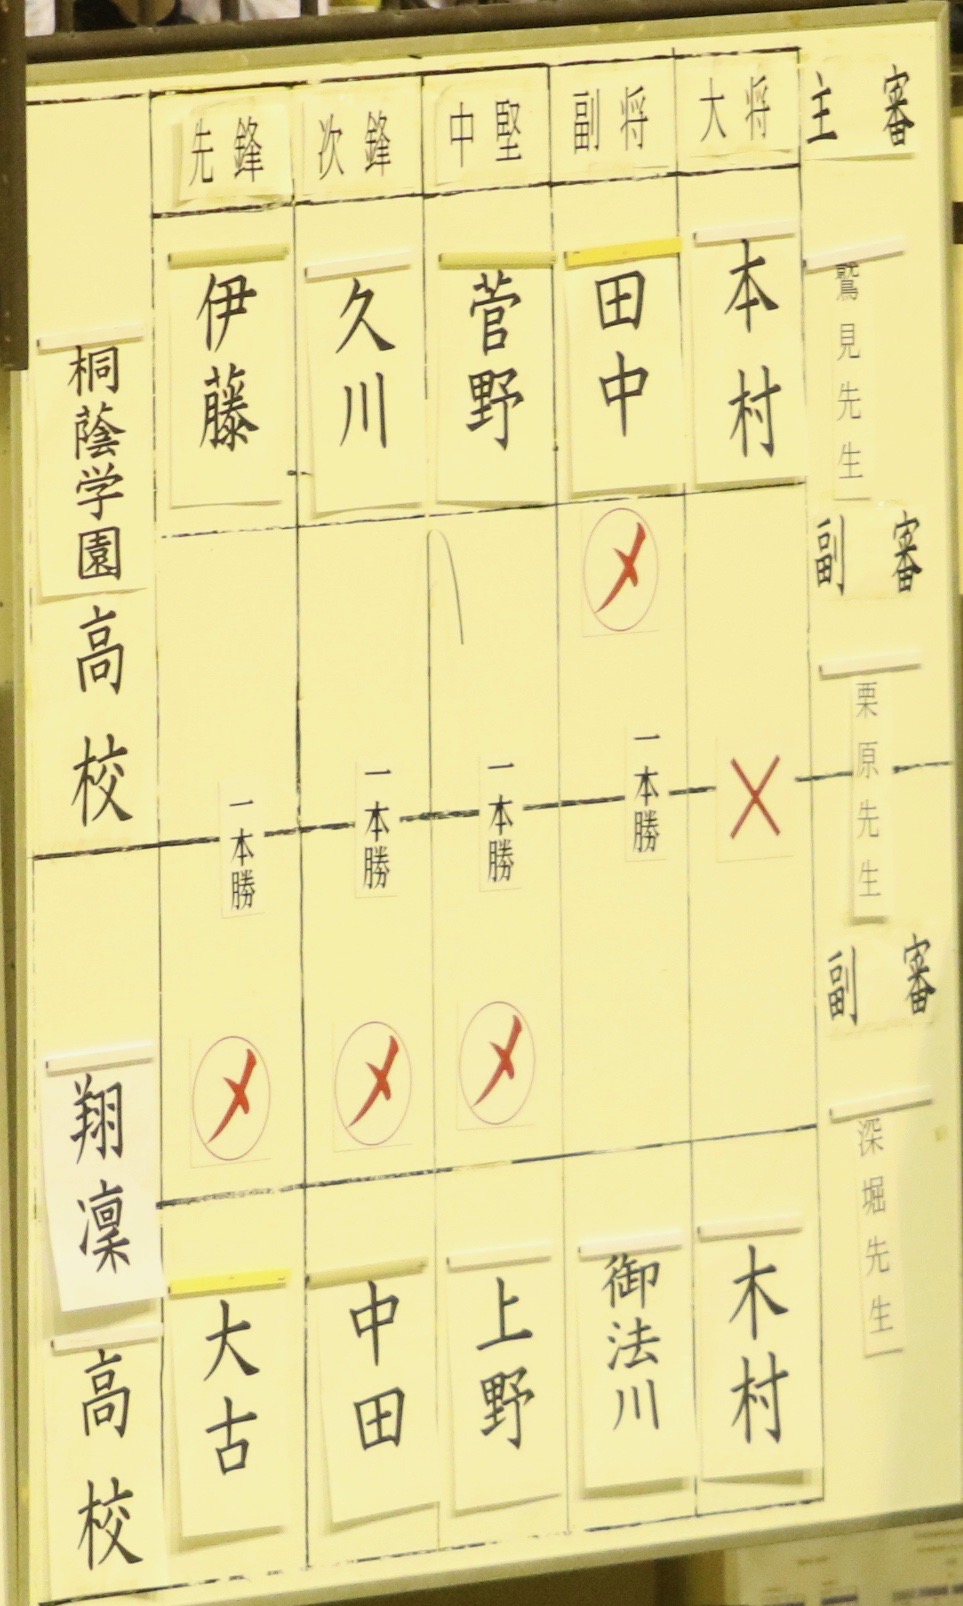 先鋒 次鋒 中堅 副将 大将 主審
桐蔭学園高校
伊藤
久川
菅野
田中
本村
鷲見先生
副審
栗原先生
副審
深堀先生
メ
一本勝
一本勝
一本勝
一本勝
メ
メ
メ
翔凜高校
大古
中田
上野
御法川
木村